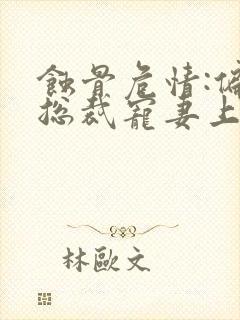 蝕骨危情:偏
总裁寵妻上
林歐文